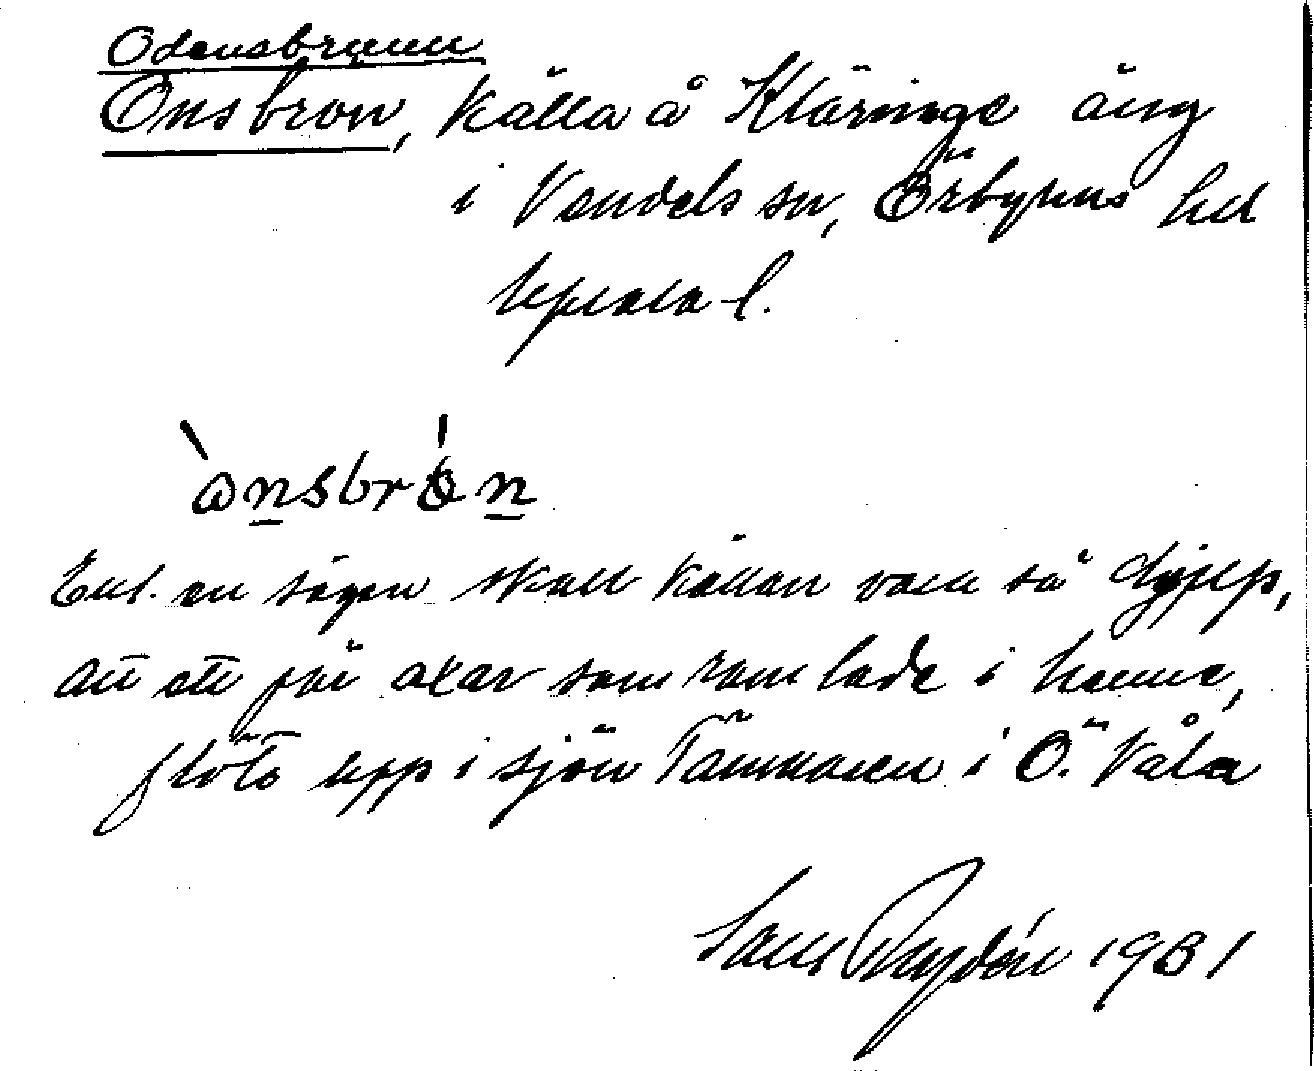 Odensbrunn
Onsbron, källa å Kläringe äng
i Vendels sn, Örbyhus hd
Upsala l.
ὼnsbrón
Enl. en sägen skall källan vara så djup,
att ett par oxar som ramlade i henne,
flöto upp i sjön Tämnaren i Ö. Våla
Sam Rydén 1931